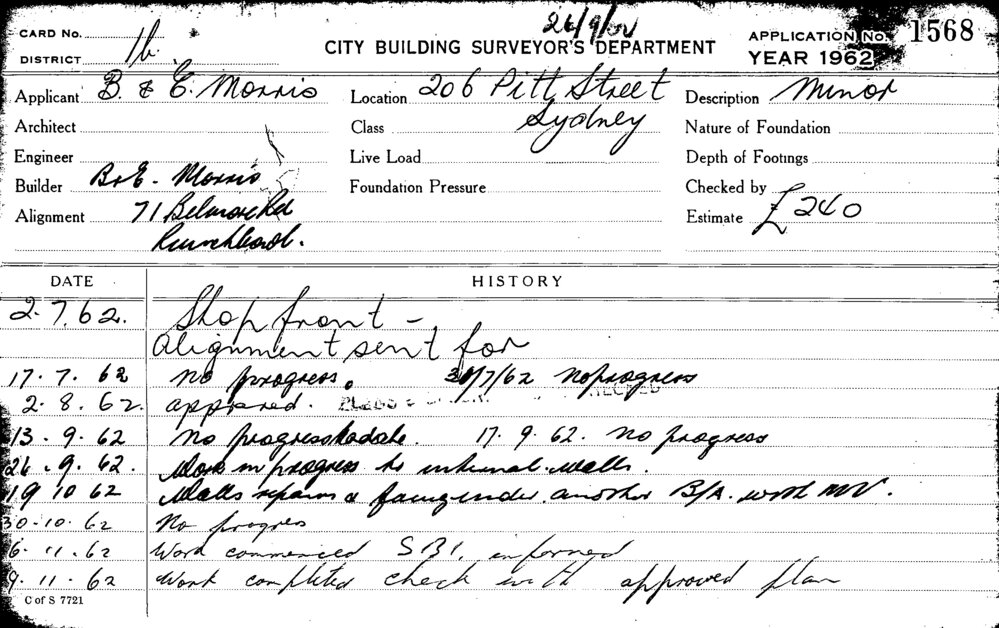 26/9/62
CARD No.
DISTRICT 1b.
CITY BUILDING SURVEYOR'S DEPARTMENT
APPLICATION No. 1568
YEAR 1962
Applicant B. & E. Morris
Location 206 Pitt Street
Sydney
Description Minor
Architect
Class
Nature of Foundation
Engineer
Live Load
Depth of Footings
Builder B & E. Morris
Foundation Pressure
Checked by
Alignment 71 Belmore Rd
Punchbowl.
Estimate £240
DATE HISTORY
2.7.62. Shop front -
Alignment sent for
17.7.62 no progress. 30/7/62 No progress
2.8.62. approved.
13.9.62 no progress to date. 17.9.62. no progress
26.9.62. Work in progress to internal walls.
19 10 62 Walls repairs & facing under another B/A. with MV.
30-10.62 No progress
6.11.62 Work commenced SBI. informed
9.11.62 Work completed check with approved plan
C of S 7721